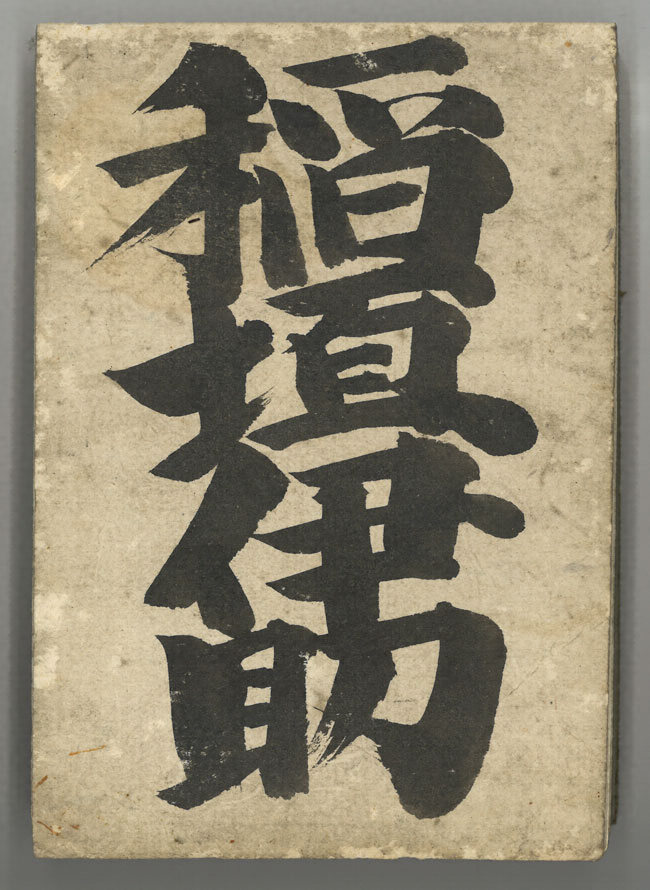 稲垣伊助